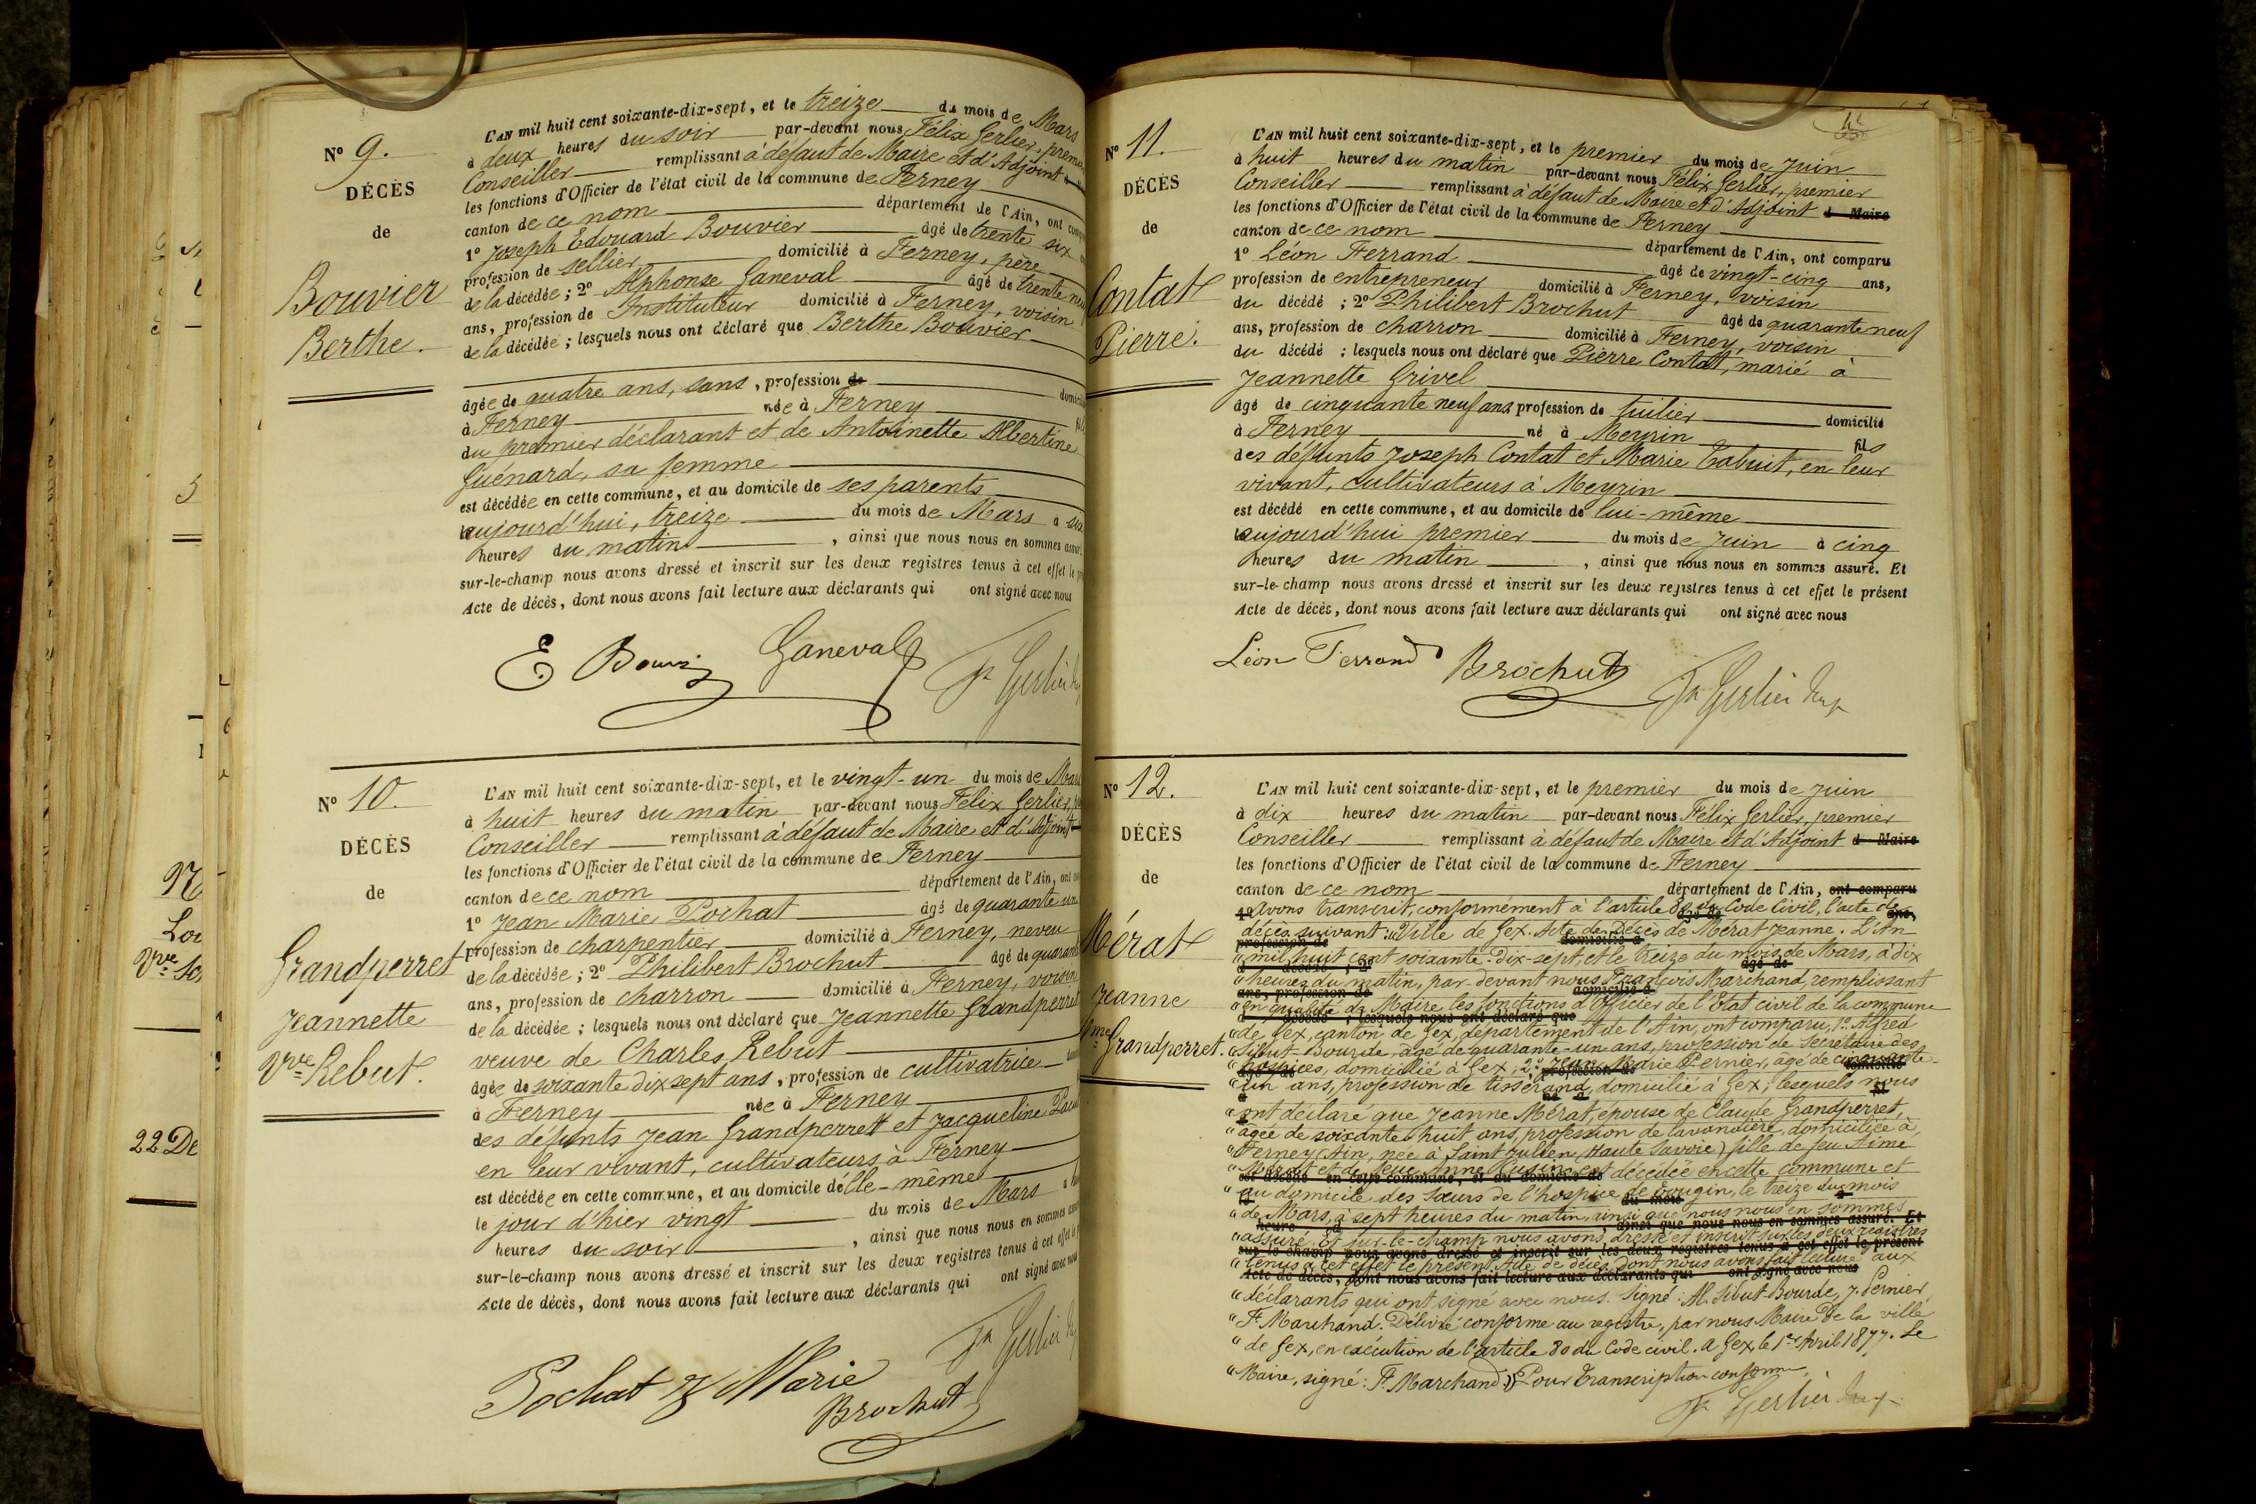 Nº 9.
DÉCÈS
de
Bouvier
Berthe.
L'AN mil huit cent soixante-dix-sept, et le treize du mois de Mars
à deux heures du soir par-devant nous Félix Gerlier, premier
Conseiller remplissant à défaut de Maire et d'Adjoint
les fonctions d'Officier de l'état civil de la commune de Ferney
canton de ce nom département de l'Ain, ont
1º Joseph Edouard Bouvier âgé de trente six
profession de sellier domicilié à Ferney, père
de la décédée ; 2º Alphonse Ganeval âgé de trente
ans, profession de Instituteur domicilié à Ferney, voisin
de la décédée ; lesquels nous ont déclaré que Berthe Bouvier
âgée de quatre ans, sans , profession de
à Ferney née à Ferney
du premier déclarant et de Antoinette Albertine
Guénard, sa femme
est décédée en cette commune, et au domicile de ses parents
aujourd'hui, treize du mois de Mars à six
heures du matin , ainsi que nous nous en sommes
sur-le-champ nous avons dressé et inscrit sur les deux registres tenus à cet effet le
Acte de décès, dont nous avons fait lecture aux déclarants qui ont signé avec nous
E Bouvier Ganeval Fx Gerlier
Nº 10.
DÉCÈS
de
Grandperret
Jeannette
Vve Rebut.
L'AN mil huit cent soixante-dix-sept, et le vingt-un du mois de Mars
à huit heures du matin par-devant nous Félix Gerlier,
Conseiller remplissant à défaut de Maire et d'Adjoint
les fonctions d'Officier de l'état civil de la commune de Ferney
canton de ce nom département de l'Ain, ont
1º Jean Marie Pochat âgé de quarante un
profession de charpentier domicilié à Ferney, neveu
de la décédée ; 2º Philibert Brochut âgé de quarante
ans, profession de charron domicilié à Ferney, voisin
de la décédée ; lesquels nous ont déclaré que Jeannette Grandperret
veuve de Charles Rebut
âgée de soixante dix sept ans, profession de cultivatrice
à Ferney née à Ferney
des défunts Jean Grandperrett et Jacqueline
en leur vivant, cultivateurs à Ferney
est décédée en cette commune, et au domicile de elle-même
le jour d'hier vingt du mois de Mars à
heures du soir , ainsi que nous nous en sommes
sur-le-champ nous avons dressé et inscrit sur les deux registres tenus à cet effet le
Acte de décès, dont nous avons fait lecture aux déclarants qui ont signé avec nous
Fx Gerlier
Pochat J Marie
Brochut
Nº 11.
DÉCÈS
de
Contat
Pierre.
L'AN mil huit cent soixante-dix-sept, et le premier du mois de Juin
à huit heures du matin par-devant nous Félix Gerlier, premier
Conseiller remplissant à défaut de Maire et d'Adjoint d Maire
les fonctions d'Officier de l'état civil de la commune de Ferney
canton de ce nom département de l'Ain, ont comparu
1º Léon Ferrand âgé de vingt-cinq ans,
profession de entrepreneur domicilié à Ferney, voisin
du décédé ; 2º Philibert Brochut âgé de quarante neuf
ans, profession de charron domicilié à Ferney, voisin
du décédé ; lesquels nous ont déclaré que Pierre Contat, marié à
Jeannette Grivel
âgé de cinquante neuf ans profession de tuilier domicilié
à Ferney né à Meyrin fils
des défunts Joseph Contat et Marie Tabuit, en leur
vivant, cultivateurs à Meyrin
est décédé en cette commune, et au domicile de lui-même
aujourd'hui premier du mois de Juin à cinq
heures du matin , ainsi que nous nous en sommes assuré. Et
sur-le-champ nous avons dressé et inscrit sur les deux registres tenus à cet effet le présent
Acte de décès, dont nous avons fait lecture aux déclarants qui ont signé avec nous
Léon Ferrand Brochut Fx Gerlier
Nº 12.
DÉCÈS
de
Mérat
Jeanne
fme Grandperret.
L'AN mil huit cent soixante-dix-sept, et le premier du mois de Juin
à dix heures du matin par-devant nous Félix Gerlier, premier
Conseiller remplissant à défaut de Maire et d'Adjoint d Maire
les fonctions d'Officier de l'état civil de la commune de Ferney
canton de ce nom département de l'Ain, ont comparu
Avons transcrit, conformément à l'article 80 du Code Civil, l'acte de
décès suivant : "Ville de Gex. Acte de Décès de Mérat Jeanne. L'An
" mil huit cent soixante-dix-sept et le treize du mois de Mars, à dix
" heures du matin, par-devant nous François Marchand, remplissant
" en qualité de Maire, les fonctions d'Officier de l'Etat civil de la commune
" de Gex, canton de Gex, département de l'Ain, ont comparu, 1º Alfred
" Sibut-Bourde, âgé de quarante-un ans, profession de Secrétaire des
" hospices, domicilié à Gex, 2º Jean Marie Pernier, âgé de cinquante-
" un ans, profession de tisserand, domicilié à Gex; lesquels nous
" ont déclaré que Jeanne Mérat, épouse de Claude Grandperret,
" âgée de soixante-huit ans, profession de lavandière, domiciliée à
" Ferney (Ain, née à Saint Julien, (Haute Savoie) fille de feu Aimé
" Mérat et de feue Anne est décédée en cette commune et
" au domicile des sœurs de l'hospice de Tougin, le treize du mois
" de Mars, à sept heures du matin, ainsi que nous nous en sommes
" assuré. Et sur-le-champ nous avons dressé et inscrit sur les deux registres
" tenus à cet effet le présent Acte de décès, dont nous avons fait lecture aux
" déclarants qui ont signé avec nous. Signé : Al. Sibut-Bourde, J. Pernier,
" Ft Marchand. Délivré conforme au registre, par nous Maire de la ville
" de Gex, en exécution de l'article 80 du Code civil. A Gex, le 1er Avril 1877. Le
" Maire, signé : Ft Marchand.)) Pour Transcription conforme,
Fx Gerlier